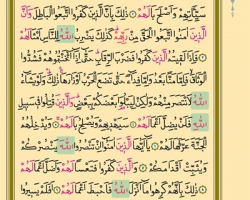 سَيِّـَٔاتِهِمْ وَأَصْلَحَ بَالَهُمْ ۝ ذَٰلِكَ بِأَنَّ ٱلَّذِينَ كَفَرُوا۟ ٱتَّبَعُوا۟ ٱلْبَٰطِلَ وَأَنَّ
ٱلَّذِينَ ءَامَنُوا۟ ٱتَّبَعُوا۟ ٱلْحَقَّ مِن رَّبِّهِمْ كَذَٰلِكَ يَضْرِبُ ٱللَّهُ لِلنَّاسِ أَمْثَٰلَهُمْ ۝
فَإِذَا لَقِيتُمُ ٱلَّذِينَ كَفَرُوا۟ فَضَرْبَ ٱلرِّقَابِ حَتَّىٰٓ إِذَآ أَثْخَنتُمُوهُمْ فَشُدُّوا۟
ٱلْوَثَاقَ فَإِمَّا مَنًّۢا بَعْدُ وَإِمَّا فِدَآءً حَتَّىٰ تَضَعَ ٱلْحَرْبُ أَوْزَارَهَا ذَٰلِكَ وَلَوْ يَشَآءُ
ٱللَّهُ لَٱنتَصَرَ مِنْهُمْ وَلَٰكِن لِّيَبْلُوَا۟ بَعْضَكُم بِبَعْضٍ وَٱلَّذِينَ قُتِلُوا۟ فِى سَبِيلِ
ٱللَّهِ فَلَن يُضِلَّ أَعْمَٰلَهُمْ ۝ سَيَهْدِيهِمْ وَيُصْلِحُ بَالَهُمْ ۝ وَيُدْخِلُهُمُ
ٱلْجَنَّةَ عَرَّفَهَا لَهُمْ ۝ يَٰٓأَيُّهَا ٱلَّذِينَ ءَامَنُوٓا۟ إِن تَنصُرُوا۟ ٱللَّهَ يَنصُرْكُمْ
وَيُثَبِّتْ أَقْدَامَكُمْ ۝ وَٱلَّذِينَ كَفَرُوا۟ فَتَعْسًا لَّهُمْ وَأَضَلَّ أَعْمَٰلَهُمْ ۝
ذَٰلِكَ بِأَنَّهُمْ كَرِهُوا۟ مَآ أَنزَلَ ٱللَّهُ فَأَحْبَطَ أَعْمَٰلَهُمْ ۝ أَفَلَمْ يَسِيرُوا۟